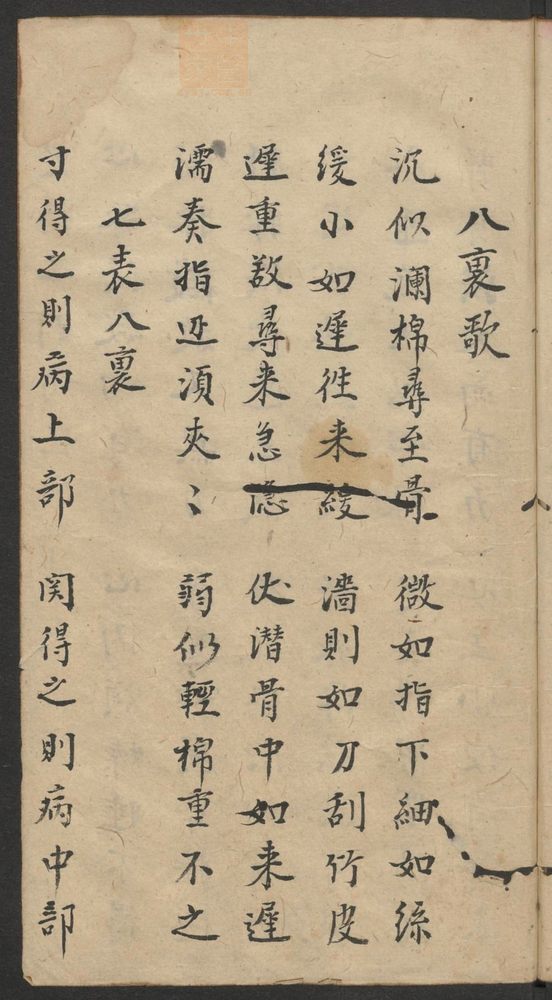 八裏歌
沉似瀾棉尋至骨 微如指下細如絲
緩小如遲徃来緩 濇則如刀刮竹皮
遲重数尋来急隐 伏潜骨中如来遲
濡奏指边須夾〻 弱似輕棉重不之
七表八裏
寸得之則病上部 関得之則病中部